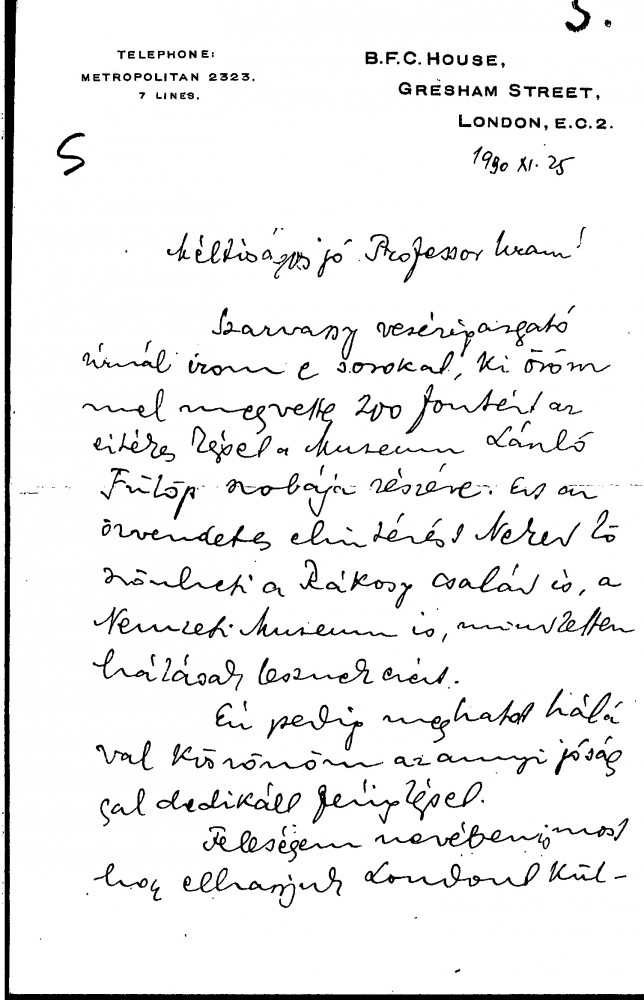 5.
TELEPHONE:
METROPOLITAN 2323.
7 LINES.
B.F.C. HOUSE,
GRESHAM STREET,
LONDON, E.C.2.
5
1930 XI. 25
Méltóságos jó Professor Uram!
Szarvasy vezérigazgató
úrnál irom e sorokat, ki öröm
mel megvette 200 fontért az
képet a Museum László
Fülöp szobája részére. Ezt az
örvendetes elintézést Neked kö
szönheti a Rákosy család is, a
Nemzeti Museum is, mindketten
hálásak lesznek ezért.
Én pedig meghatott hálá
val köszönöm az annyi jóság
gal dedikált fényképet.
Feleségem nevében is most
hogy elhagyjuk Londont kül-